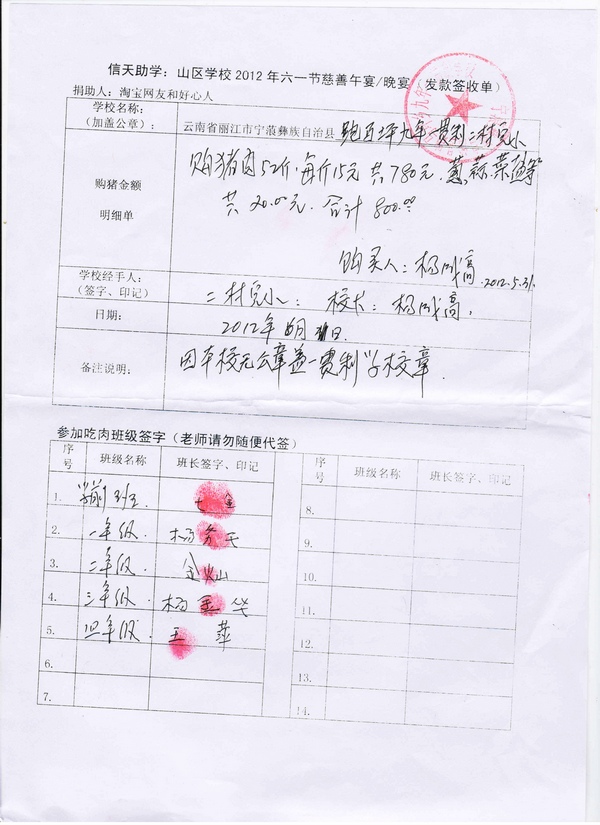 信天助学：山区学校2012年六一节慈善午宴/晚宴（发款签收单）
捐助人：淘宝网友和好心人
学校名称：
（加盖公章）：
云南省丽江市宁蒗彝族自治县 跑马坪九年一贯制二村完小
购猪金额
明细单
购猪肉52斤，每斤15元 共780元，葱蒜菜等
共20.00元，合计800.00
购买人：杨成高，2012.5.31.
学校经手人：
（签字、印记）
二村完小：校长：杨成高，
日期：
2012年 月 日
备注说明：
因本校无公章盖一贯制学校章
参加吃肉班级签字（老师请勿随便代签）
序号 班级名称 班长签字、印记 序号 班级名称 班长签字、印记
1. 学前班 8.
2. 一年级 杨 9.
3. 二年级 金灿 10.
4. 三年级 杨 华 11.
5. 四年级 王萍 12.
6. 13.
7. 14.